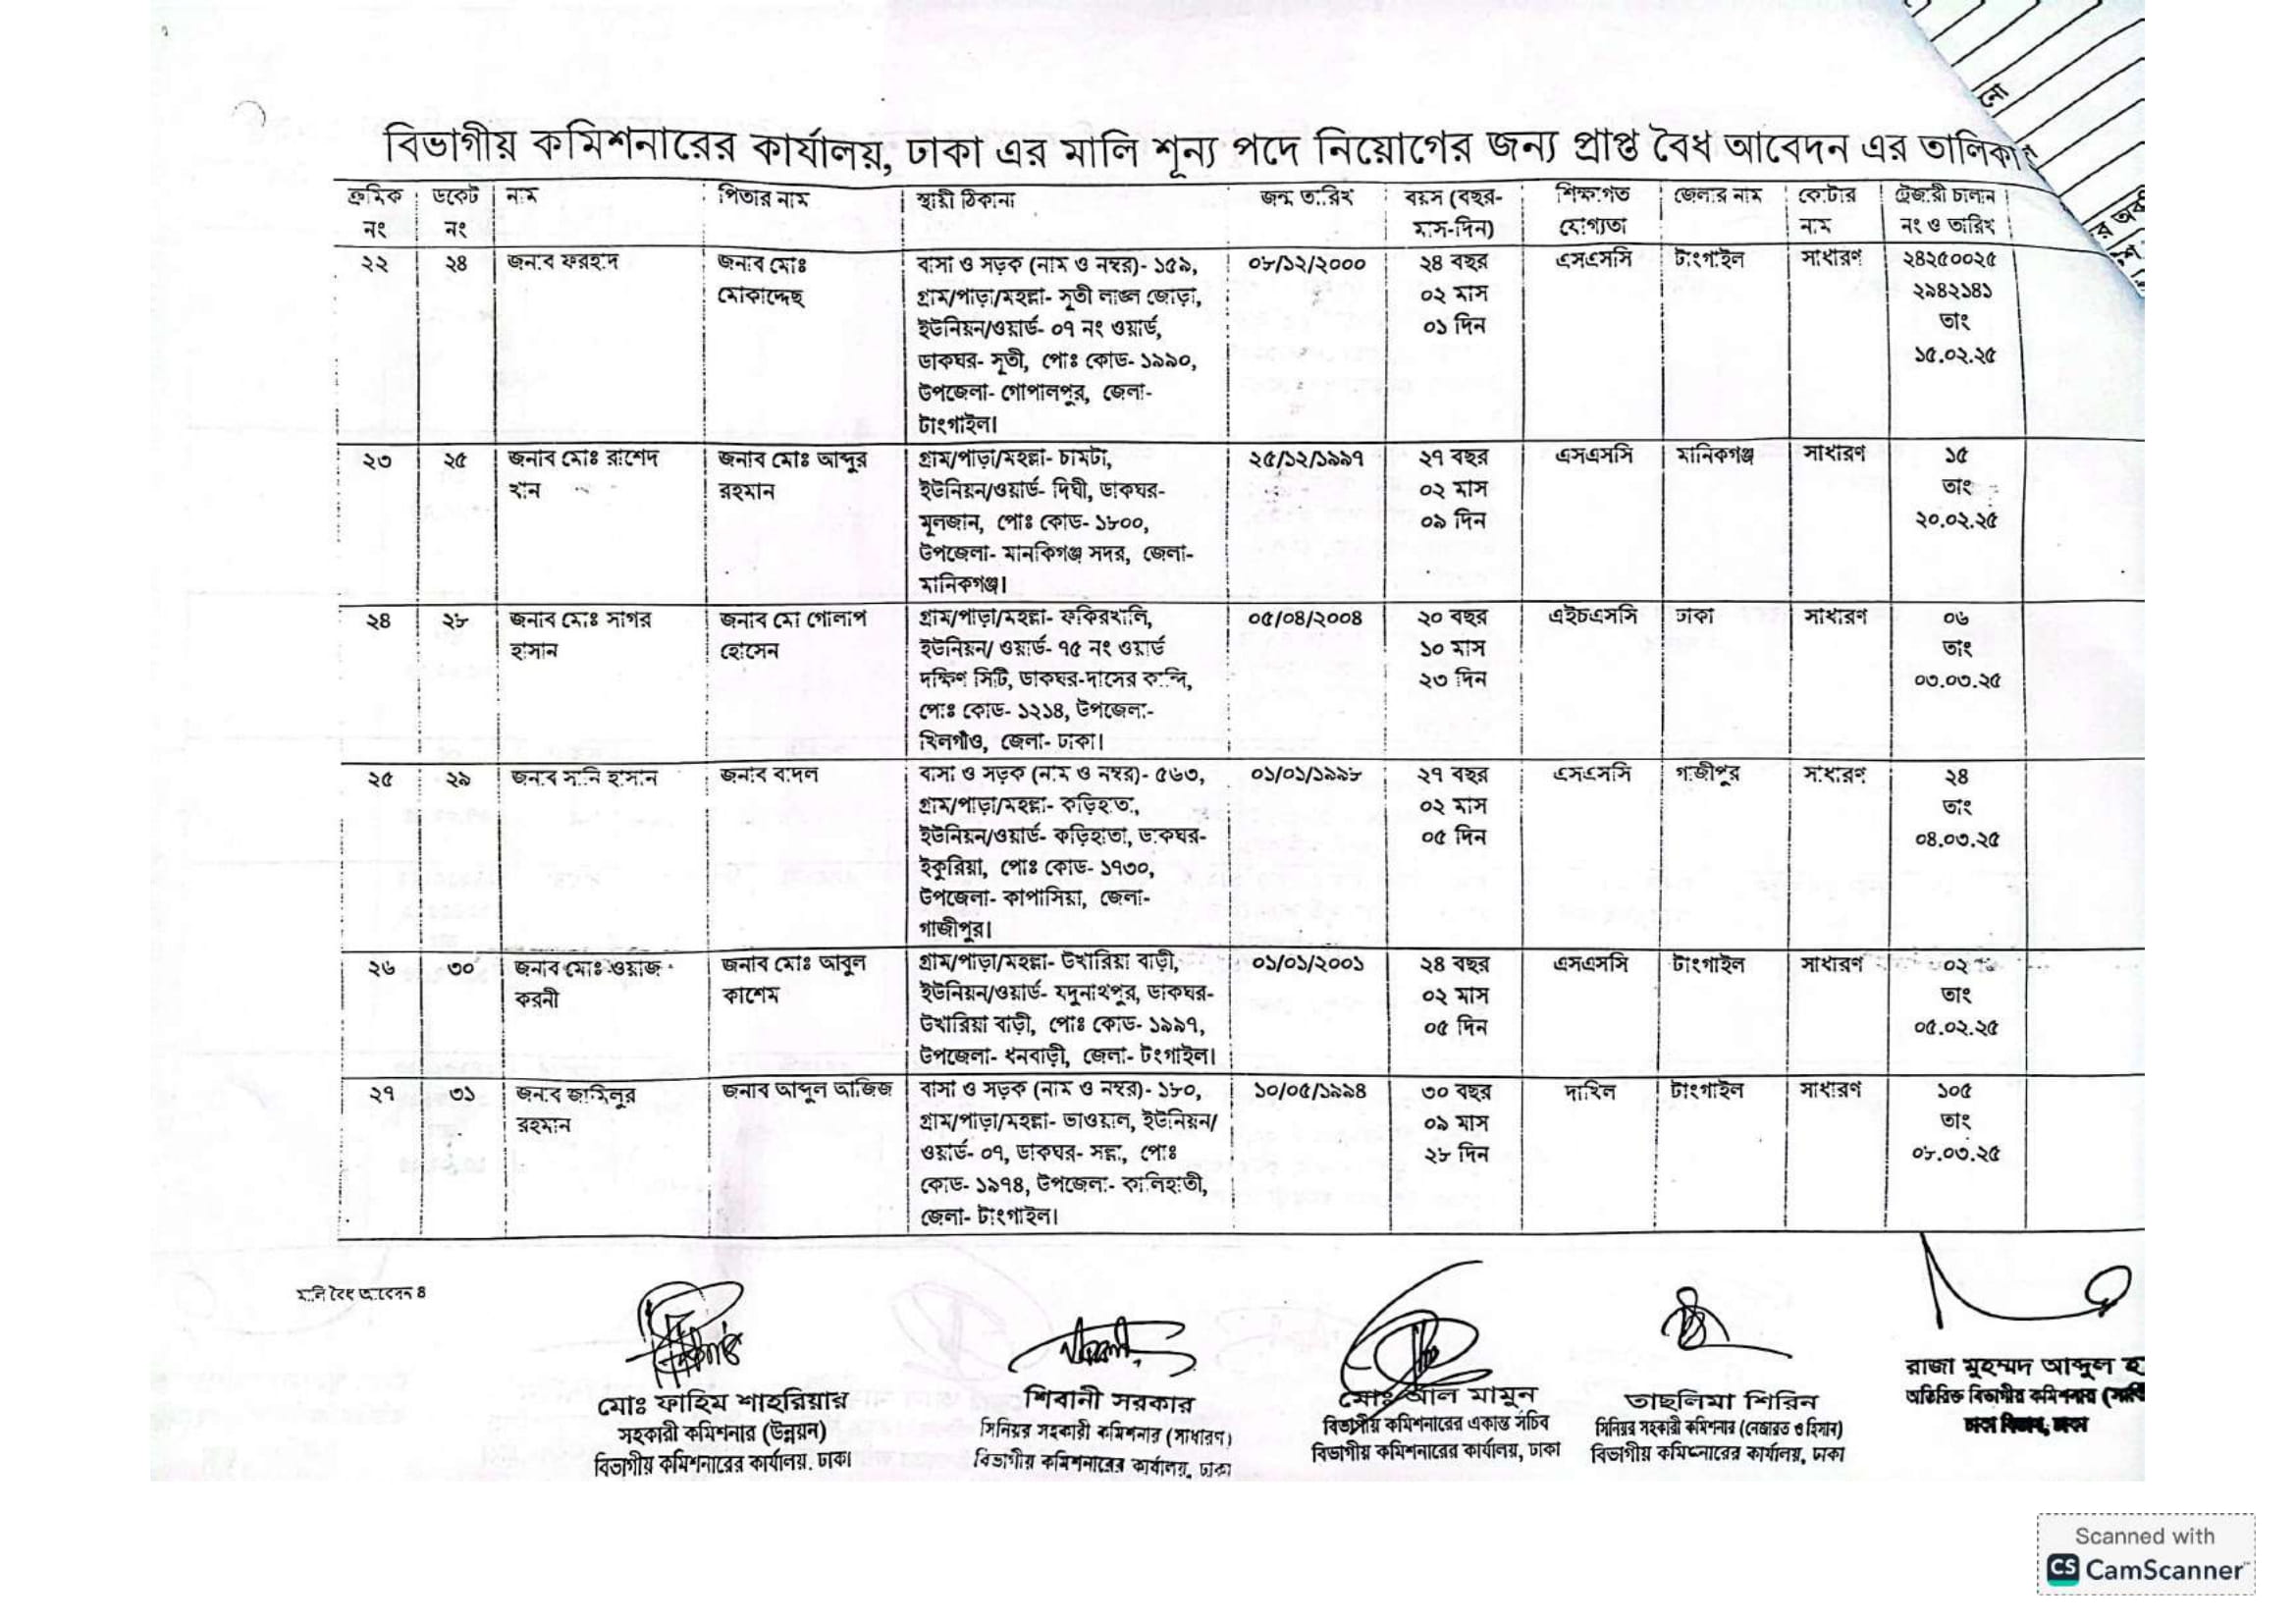 বিভাগীয় কমিশনারের কার্যালয়, ঢাকা এর মালি শূন্য পদে নিয়োগের জন্য প্রাপ্ত বৈধ আবেদন এর তালিকা
ক্রমিক নং ডকেট নং নাম পিতার নাম স্থায়ী ঠিকানা জন্ম তারিখ বয়স (বছর-মাস-দিন) শিক্ষাগত যোগ্যতা জেলার নাম কোটার নাম ট্রেজারী চালান নং ও তারিখ
২২ ২৪ জনাব ফরহাদ জনাব মোঃ বাসা ও সড়ক (নাম ও নম্বর)- ১৫৯, ০৮/১২/২০০০ ২৪ বছর এসএসসি টাংগাইল সাধারণ ২৪২৫০০২৫
মোকাদ্দেছ গ্রাম/পাড়া/মহল্লা- সূতী লাঙ্গল জোড়া, ০২ মাস ২৯৪২১৪১
ইউনিয়ন/ওয়ার্ড- ০৭ নং ওয়ার্ড, ০১ দিন তাং
ডাকঘর- সূতী, পোঃ কোড- ১৯৯০, ১৫.০২.২৫
উপজেলা- গোপালপুর, জেলা-
টাংগাইল।
২৩ ২৫ জনাব মোঃ রাশেদ জনাব মোঃ আব্দুর গ্রাম/পাড়া/মহল্লা- চামটা, ২৫/১২/১৯৯৭ ২৭ বছর এসএসসি মানিকগঞ্জ সাধারণ ১৫
খান রহমান ইউনিয়ন/ওয়ার্ড- দিঘী, ডাকঘর- ০২ মাস তাং
মূলজান, পোঃ কোড- ১৮০০, ০৯ দিন ২০.০২.২৫
উপজেলা- মানকিগঞ্জ সদর, জেলা-
মানিকগঞ্জ।
২৪ ২৮ জনাব মোঃ সাগর জনাব মো গোলাপ গ্রাম/পাড়া/মহল্লা- ফকিরখালি, ০৫/০৪/২০০৪ ২০ বছর এইচএসসি ঢাকা সাধারণ ০৬
হাসান হোসেন ইউনিয়ন/ ওয়ার্ড- ৭৫ নং ওয়ার্ড ১০ মাস তাং
দক্ষিণ সিটি, ডাকঘর-দাসের কান্দি, ২৩ দিন ০৩.০৩.২৫
পোঃ কোড- ১২১৪, উপজেলা-
খিলগাঁও, জেলা- ঢাকা।
২৫ ২৯ জনাব সানি হাসান জনাব বাদল বাসা ও সড়ক (নাম ও নম্বর)- ৫৬৩, ০১/০১/১৯৯৮ ২৭ বছর এসএসসি গাজীপুর সাধারণ ২৪
গ্রাম/পাড়া/মহল্লা- কড়িহাতা, ০২ মাস তাং
ইউনিয়ন/ওয়ার্ড- কড়িহাতা, ডাকঘর- ০৫ দিন ০৪.০৩.২৫
ইকুরিয়া, পোঃ কোড- ১৭৩০,
উপজেলা- কাপাসিয়া, জেলা-
গাজীপুর।
২৬ ৩০ জনাব মোঃ ওয়াজ জনাব মোঃ আবুল গ্রাম/পাড়া/মহল্লা- উখারিয়া বাড়ী, ০১/০১/২০০১ ২৪ বছর এসএসসি টাংগাইল সাধারণ ০২
করনী কাশেম ইউনিয়ন/ওয়ার্ড- যদুনাথপুর, ডাকঘর- ০২ মাস তাং
উখারিয়া বাড়ী, পোঃ কোড- ১৯৯৭, ০৫ দিন ০৫.০২.২৫
উপজেলা- ধনবাড়ী, জেলা- টংগাইল।
২৭ ৩১ জনাব জামিলুর জনাব আব্দুল আজিজ বাসা ও সড়ক (নাম ও নম্বর)- ১৮০, ১০/০৫/১৯৯৪ ৩০ বছর দাখিল টাংগাইল সাধারণ ১০৫
রহমান গ্রাম/পাড়া/মহল্লা- ভাওয়াল, ইউনিয়ন/ ০৯ মাস তাং
ওয়ার্ড- ০৭, ডাকঘর- সল্লা, পোঃ ২৮ দিন ০৮.০৩.২৫
কোড- ১৯৭৪, উপজেলা- কালিহাতী,
জেলা- টাংগাইল।
মালি বৈধ আবেদন 4
মোঃ ফাহিম শাহরিয়ার শিবানী সরকার মোঃ আল মামুন তাছলিমা শিরিন রাজা মুহম্মদ আব্দুল হ
সহকারী কমিশনার (উন্নয়ন) সিনিয়র সহকারী কমিশনার (সাধারণ) বিভাগীয় কমিশনারের একান্ত সচিব সিনিয়র সহকারী কমিশনার (নেজারত ও হিসাব) অতিরিক্ত বিভাগীয় কমিশনার
বিভাগীয় কমিশনারের কার্যালয়, ঢাকা। বিভাগীয় কমিশনারের কার্যালয়, ঢাকা বিভাগীয় কমিশনারের কার্যালয়, ঢাকা বিভাগীয় কমিশনারের কার্যালয়, ঢাকা ঢাকা বিভাগ, ঢাকা
Scanned with
CS CamScanner